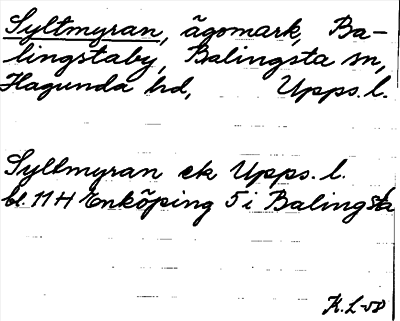 Syltmyran, ägomark, Ba-
lingstaby, Balingsta sn,
Hagunda hd, Upps. l.
Syltmyran ek Upps. l.
bl. 11 H Enköping 5 i Balingsta
K. L-58